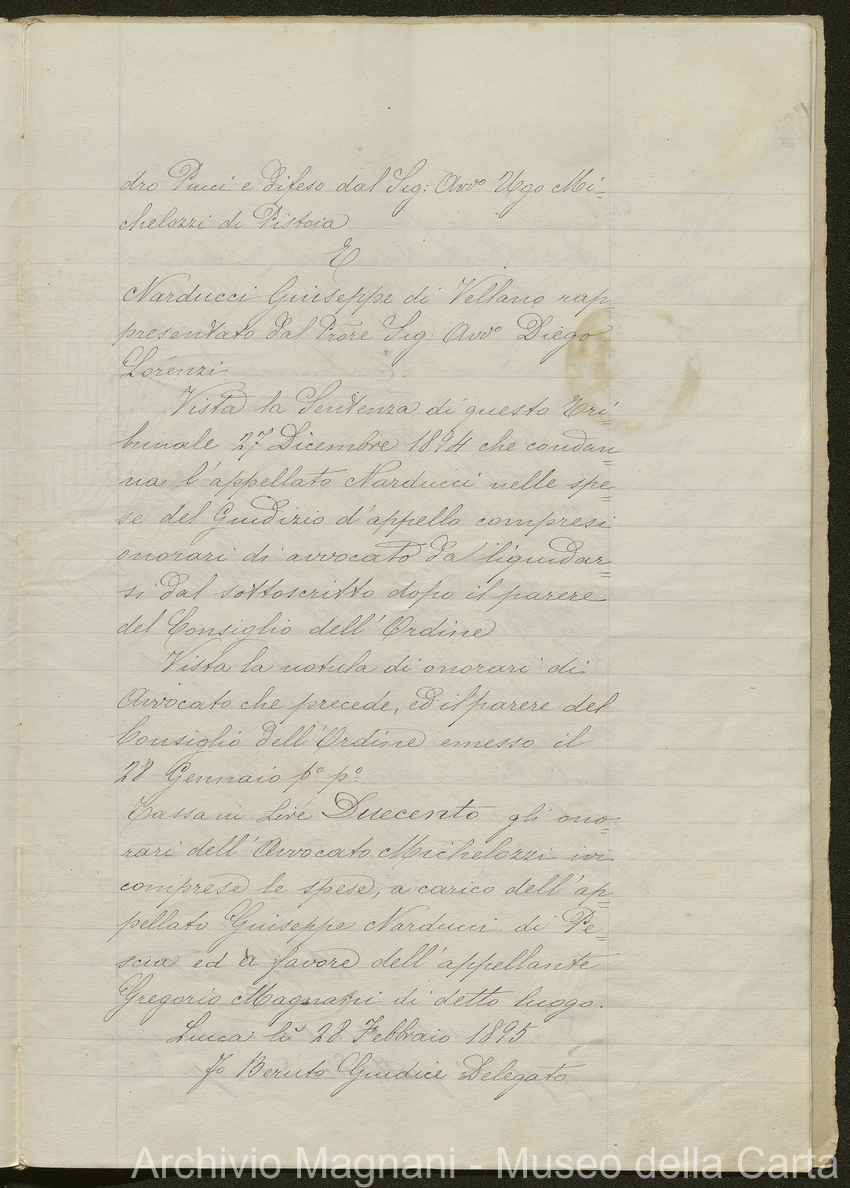 dro Pucci e Difeso dal Sig: Avv.º Ugo Mi=
chelozzi di Pistoia
E
Narducci Giuseppe di Vellano rap=
presentato dal Prore Sig. Avv.º Diego
Lorenzi
Vista la Sentenza di questo Tri=
bunale 27 Dicembre 1894 che condan=
na l'appellato Narducci nelle spe=
se del Giudizio d'appello compresi
onorari di avvocato da liquidar=
si dal sottoscritto dopo il parere
del Consiglio dell'Ordine
Vista la notula di onorari di
Avvocato che precede, ed il parere del
Consiglio dell'Ordine emesso il
28 Gennaio pº pº
Tassa in Lire Duecento gli ono=
rari dell'Avvocato Michelozzi ivi
comprese le spese, a carico dell'ap=
pellato Giuseppe Narducci di Pe=
scia ed a favore dell'appellante
Gregorio Magnani di detto luogo.
Lucca li 28 Febbraio 1895
Fo Beruto Giudice Delegato
Archivio Magnani - Museo della Carta